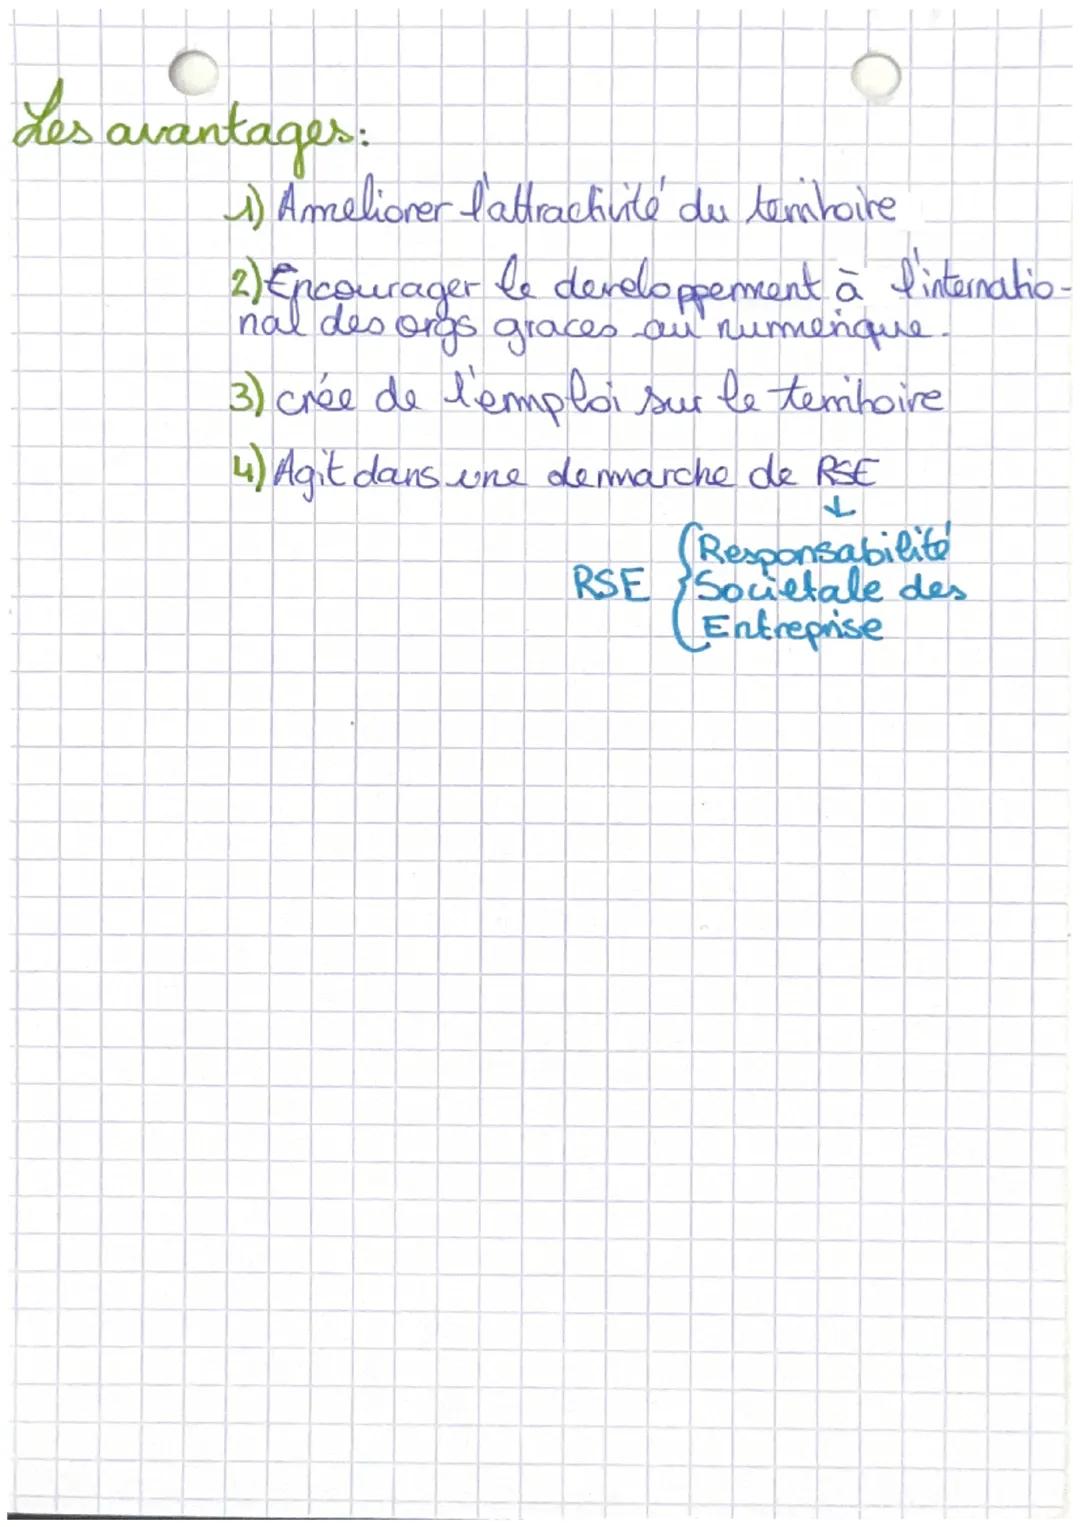 Les avantages:
1) Ameliorer l'attractivité du territoire
2) Encourager le developpement à l'internatio-
nal des orgs graces au numerique.
3) crée de l'emploi sur le territoire
4) Agit dans une demarche de RSE
↓
Responsabilité
RSE { Societale des
Entreprise